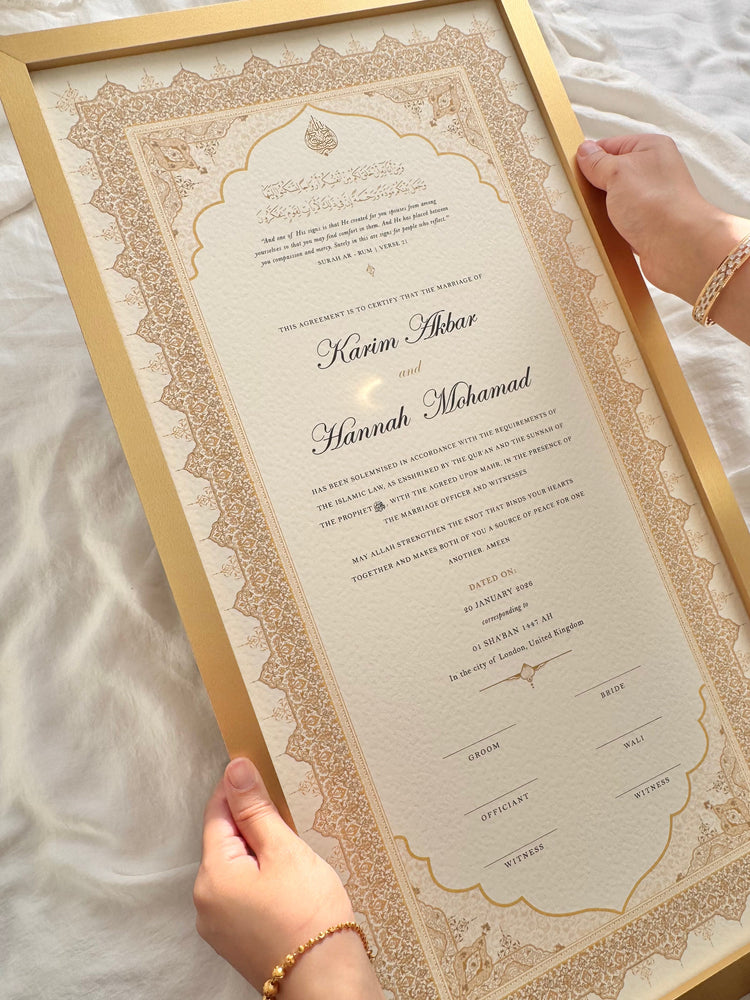 "And one of His signs is that He created for you spouses from among
yourselves so that you may find comfort in them. And He has placed between
you compassion and mercy. Surely in this are signs for people who reflect."
SURAH AR - RUM | VERSE 21
THIS AGREEMENT IS TO CERTIFY THAT THE MARRIAGE OF
Karim Akbar
and
Hannah Mohamad
HAS BEEN SOLEMNISED IN ACCORDANCE WITH THE REQUIREMENTS OF
THE ISLAMIC LAW, AS ENSHRINED BY THE QUR'AN AND THE SUNNAH OF
THE PROPHET ﷺ, WITH THE AGREED UPON MAHR, IN THE PRESENCE OF
THE MARRIAGE OFFICER AND WITNESSES
MAY ALLAH STRENGTHEN THE KNOT THAT BINDS YOUR HEARTS
TOGETHER AND MAKES BOTH OF YOU A SOURCE OF PEACE FOR ONE
ANOTHER. AMEEN
DATED ON:
20 JANUARY 2026
corresponding to
01 SHA'BAN 1447 AH
In the city of London, United Kingdom
GROOM
BRIDE
OFFICIANT
WALI
WITNESS
WITNESS